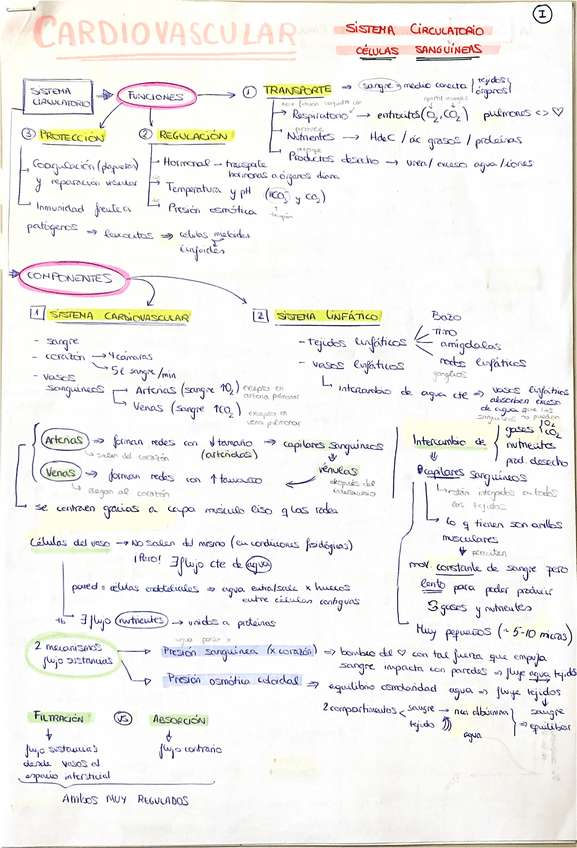 I
CARDIOVASCULAR
SISTEMA CIRCULATORIO
CÉLULAS SANGUÍNEAS
SISTEMA CIRCULATORIO
FUNCIONES
① TRANSPORTE ⇒ sangre → medio conecta tejidos
órganos
Respiratorio → eritrocitos (O₂, CO₂) pulmones <> ♡
Nutrientes → HdeC / ác grasos / proteínas
Productos desecho → urea / exceso agua / iones
③ PROTECCIÓN
Coagulación (plaquetas)
y reparación vascular
Inmunidad frente a
patógenos ⇒ leucocitos ⇒ células
linfoides
② REGULACIÓN
Hormonal → transporte
hormonas a órganos diana
Temperatura y pH (HCO₃⁻ y CO₂)
Presión osmótica
COMPONENTES
1 SISTEMA CARDIOVASCULAR
- sangre
- corazón → 4 cámaras
5 ℓ sangre/min
- vasos
sanguíneos
Arterias (sangre ↑O₂) excepto en
arteria pulmonar
Venas (sangre ↑CO₂) excepto en
vena pulmonar
2 SISTEMA LINFÁTICO
- tejidos linfáticos
Bazo
Timo
amígdalas
nodos linfáticos
ganglios
- vasos linfáticos
Intercambio de agua cte ⇒ vasos linfáticos
absorben exceso
de agua que los
sanguíneos no pueden
Arterias ⇒ forman redes con ↓ tamaño → capilares sanguíneos
salen del corazón
(arteriolas)
Venas ⇒ forman redes con ↑ tamaño
llegan al corazón
vénulas
después del
intercambio
se contraen gracias a capa músculo liso q las rodea
Intercambio de
gases O₂
CO₂
nutrientes
prod. desecho
capilares sanguíneos
están integrados en todos
los tejidos
lo q tienen son anillos
musculares
permiten
mov. constante de sangre pero
lento para poder producir
gases y nutrientes
Muy pequeños (~5-10 micras)
Células del vaso → No salen del mismo (en condiciones fisiológicas)
¡Pero! ∃ flujo cte de agua
pared = células endoteliales ⇒ agua entra/sale x huecos
entre células contiguas
tb ∃ flujo nutrientes → unidos a proteínas
2 mecanismos
flujo sustancias
Presión sanguínea (x corazón) ⇒ bombeo del ♡ con tal fuerza que empuja
sangre impacta con paredes ⇒ fluye agua tejidos
Presión osmótica coloidal ⇒ equilibrio osmolaridad agua ⇒ fluye tejidos
sangre
2 compartimentos
sangre → albúmina
tejido
agua
⇒ equilibrar
FILTRACIÓN VS ABSORCIÓN
flujo sustancias
desde vasos al
espacio intersticial
flujo contrario
AMBOS MUY REGULADOS